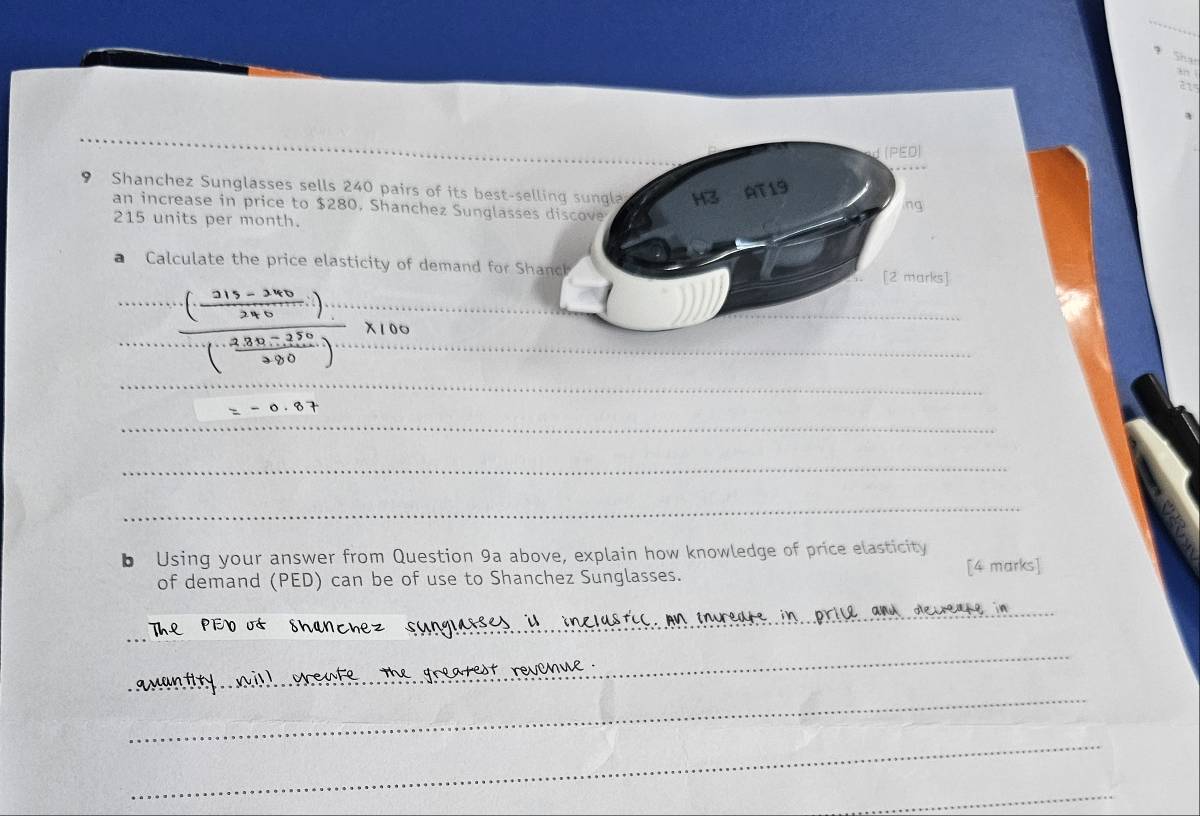 d (PED)
9 Shanchez Sunglasses sells 240 pairs of its best-selling sungla
an increase in price to $280, Shanchez Sunglasses discove
ng
215 units per month.
H3 AT19
a Calculate the price elasticity of demand for Shanch
[2 marks]
(215 - 240
240)
(280 - 250
280)
X100
= - 0.87
b Using your answer from Question 9a above, explain how knowledge of price elasticity
of demand (PED) can be of use to Shanchez Sunglasses.
[4 marks]
The PED of Shanchez sunglasses is inelastic. An increase in price and decrease in
quantity will create the greatest revenue.
9 Shan
an i
215
a